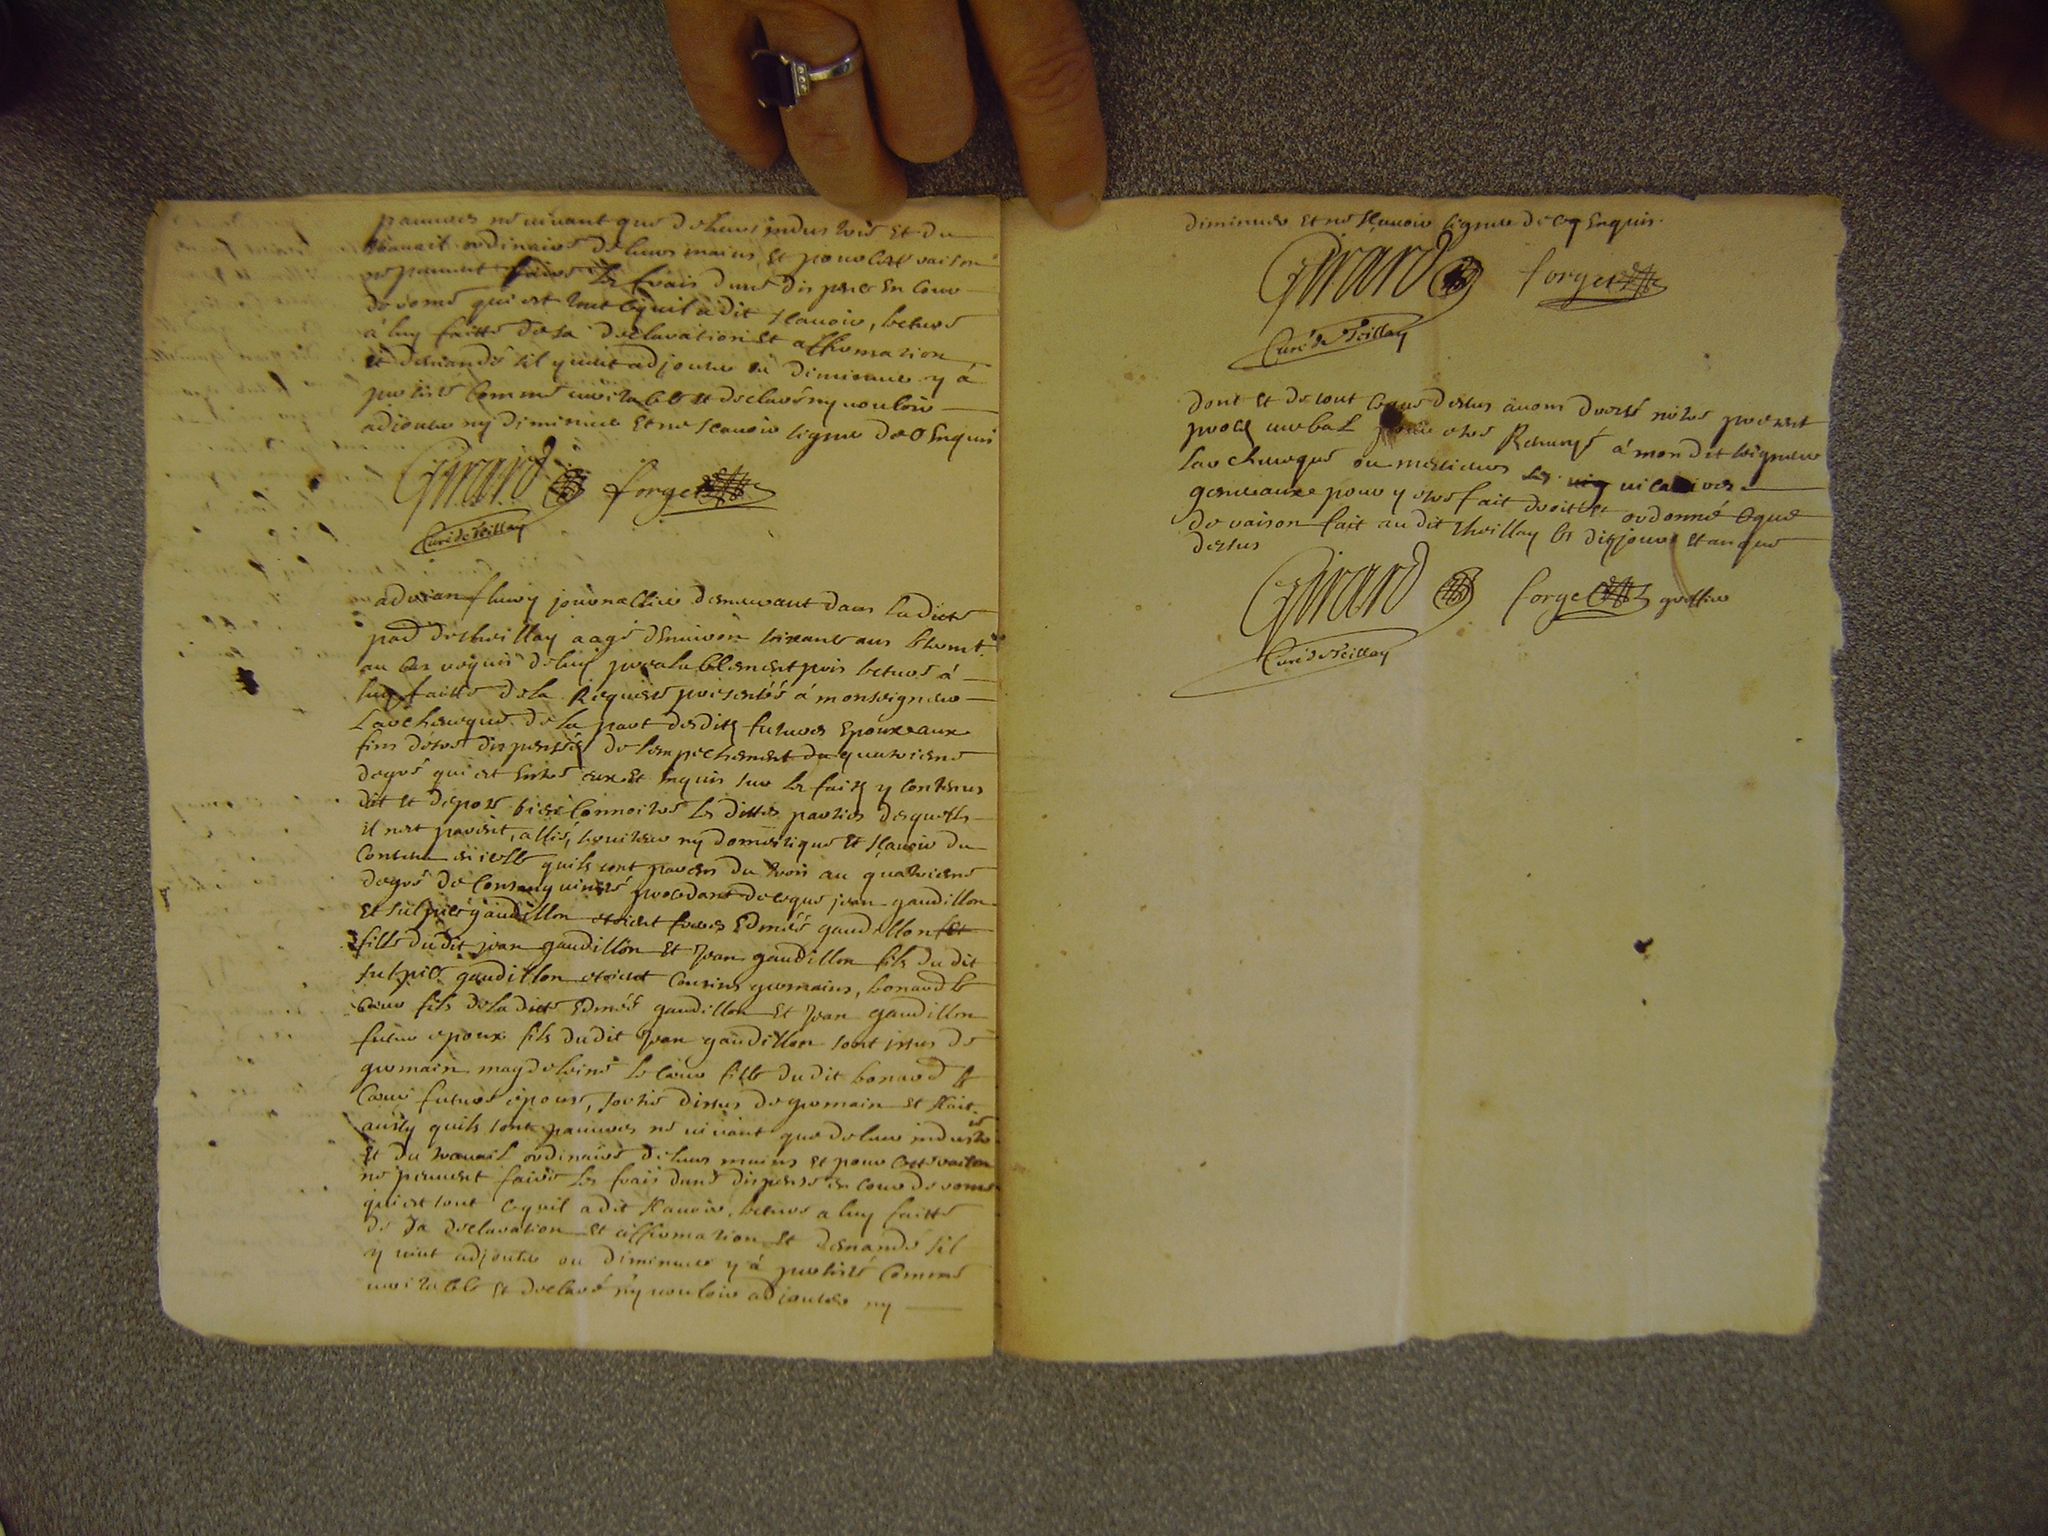 pauures ne uiuant que de leurs industrie et du
trauail ordinaire de leurs mains, et pour cette raison
ne peuuent faire les frais dune dispence en Cour
de rome qui est tout ce quil a dit scauoir, lecture
a luy faitte de sa declaration et affirmation
et demandé sil y ueut adjouter ou diminuer y à
persisté Comme ueritable et declaré ny uouloir
adjouter ny diminuer et ne scauoir signer de ce Enquis
Girard forget
Curé de Teillay
adrian fleury journallier demeurant dans la dicte
par. de theillay aagé denuiron soixante ans le sermt.
au cas requis de luy prealablement pris lecture à
luy faitte de la Requeste presentéé á monseigneur
Larcheuesque de la part desdits futures Epoux aux
fins dètre dispensés de lempechement du quatrieme
degré qui est Entre eux et Enquis sur les faits y contenus
dit et depose bien Connoitre les dittes parties desquelles
il nest parent, allié, seruiteur ny domestique et scauoir du
Contenu en icelle quils sont parens du trois au quatrieme
degré de Consanguinité procedant de ce que jean gaudillon
et sulpice gaudillon etoient freres Edméé gaudillon
fille du dit jean gaudillon et Jean gaudillon fils du dit
sulpice gaudillon etoient Cousins germains, leonard le
Cœur fils de la dicte Edméé gaudillon et Jean gaudillon
futur epoux fils du dit Jean gaudillon sont issus de
germain magdeleine le Cœur fille du dit leonard le
Cœur future épouse, sortie dissus de germain et scait
aussy quils sont pauures ne uiuant que de leur industrie
et du trauail ordinaire de leurs mains et pour cette raison
ne peuuent faire les frais dune dispense en Cour de rome
qui est tout ce quil a dit scauoir, lecture a luy faitte
de sa declaration et affirmation et demandé sil
y ueut adjouter ou diminuer y à persisté Comme
ueritable et declaré ny uouloir adjouter ny
diminuer et ne scauoir signer de ce Enquis.
Girard forget
Curé de Teillay
dont et de tout ce que dessus auons dressé nôtre present
proces uerbal pour etre Renuoyé á mon dit seigneur
larcheuesque ou messieurs les uicaires
generaux pour y etre fait droit et ordonné ce que
de raison fait au dit theillay les dits jour et an que
dessus
Girard forget greffier
Curé de Teillay